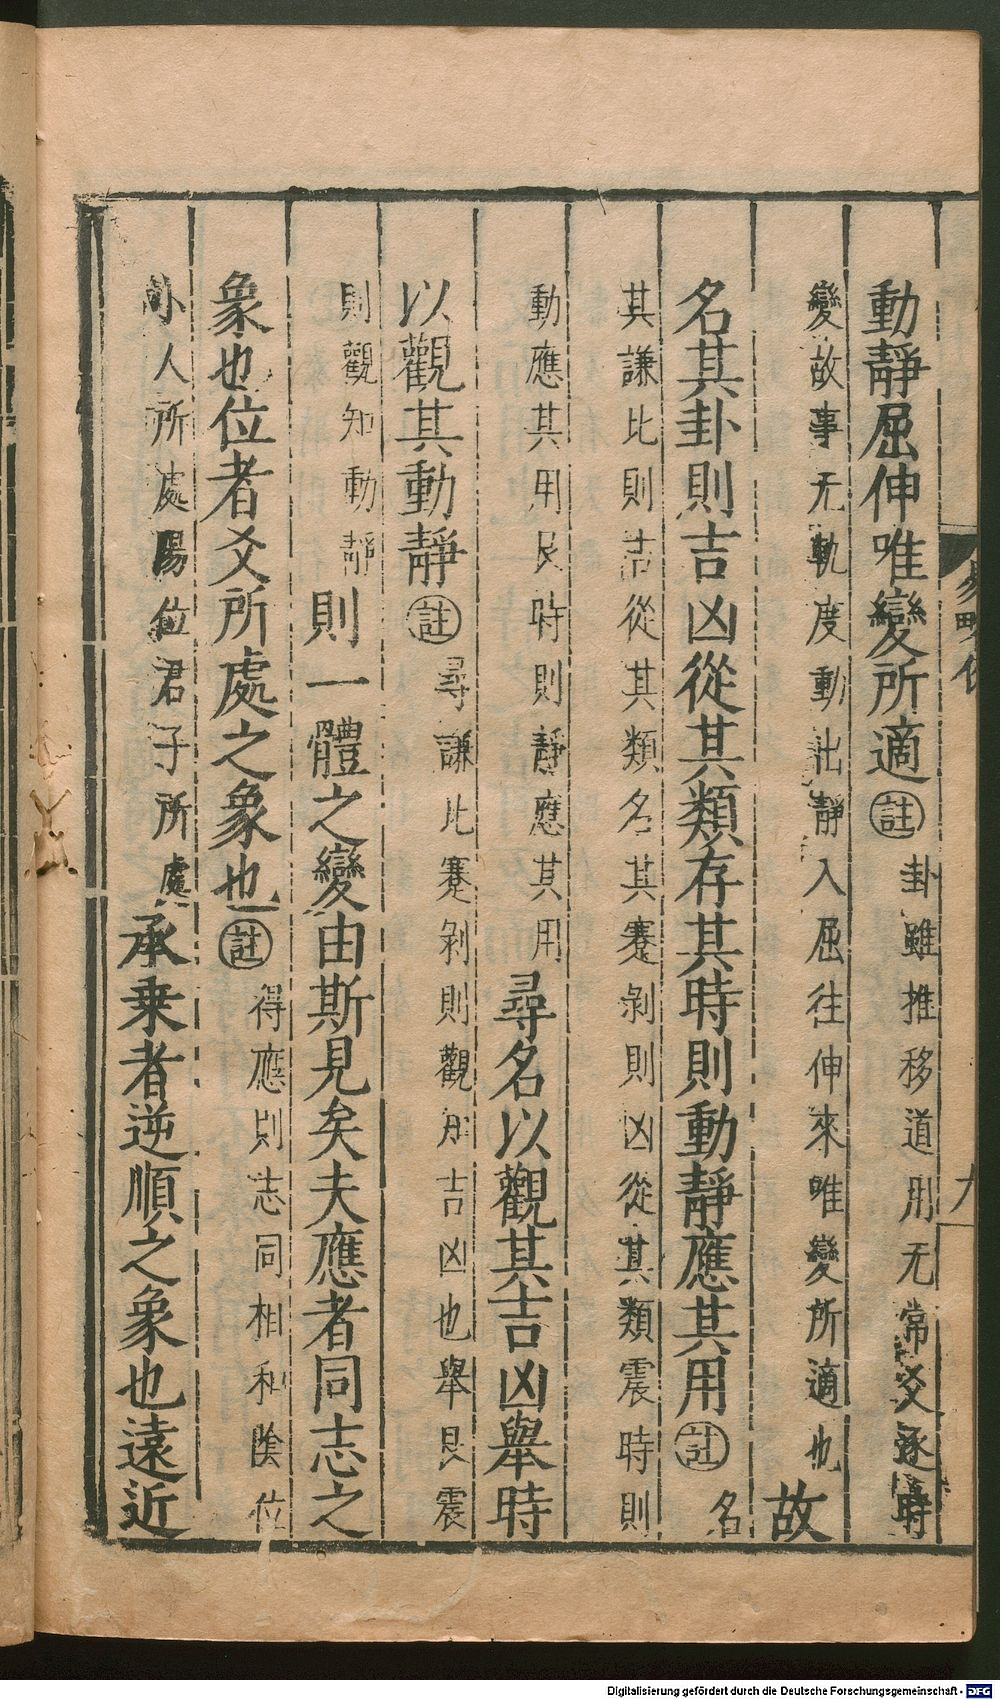 動靜屈伸唯變所適註卦雖推移道用无常爻逐時
變故事无軌度動出靜入屈往伸來唯變所適也故
名其卦則吉凶從其類存其時則動靜應其用註名
其謙比則吉從其類名其蹇剝則凶從其類震時則
動應其用艮時則靜應其用尋名以觀其吉凶舉時
以觀其動靜註尋謙比蹇剝則觀知吉凶也舉艮震
則觀知動靜則一體之變由斯見矣夫應者同志之
象也位者爻所處之象也註得應則志同相和陰位
小人所處陽位君子所處承乗者逆順之象也遠近
Digitalisierung gefördert durch die Deutsche Forschungsgemeinschaft - DFG